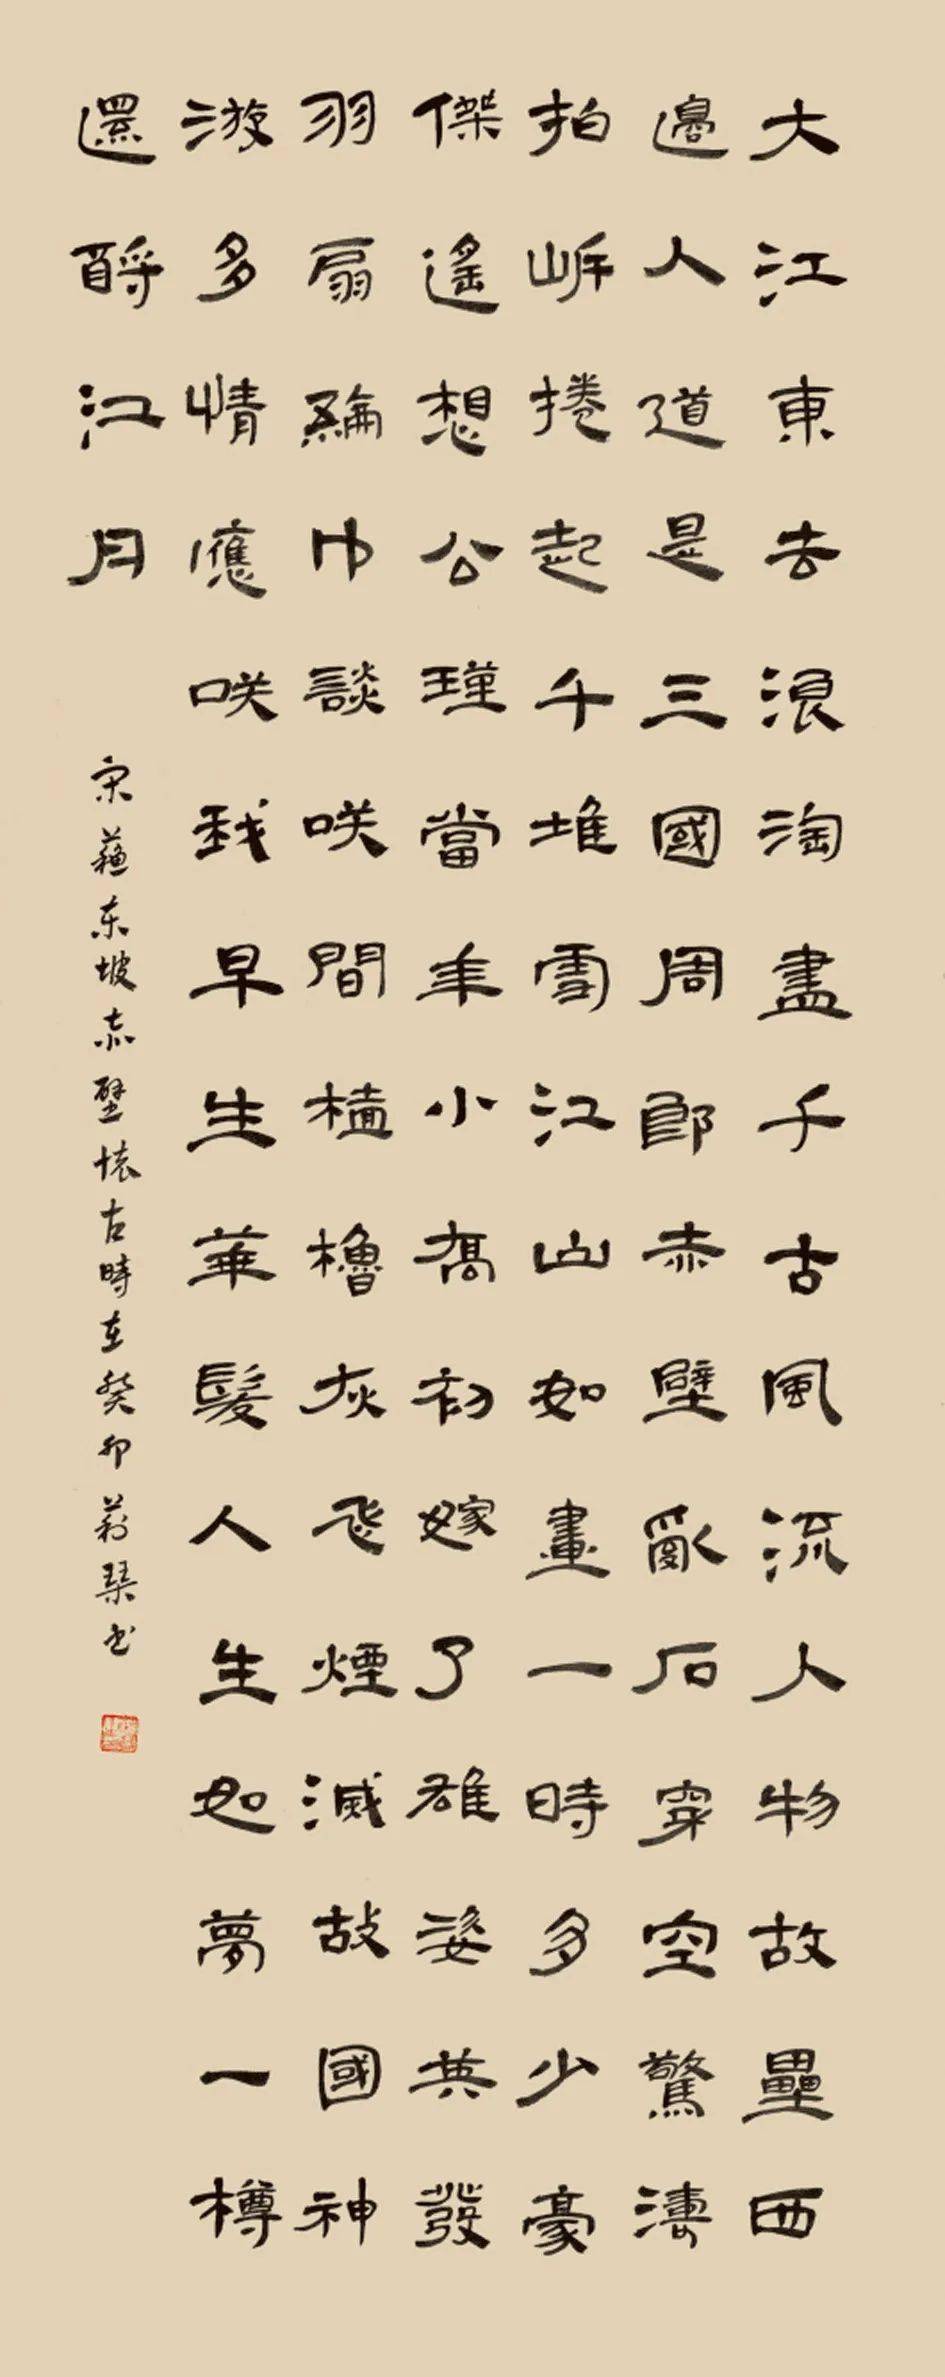 大江東去浪淘盡千古風流人物故壘西
邊人道是三國周郎赤壁亂石穿空驚濤
拍岸捲起千堆雪江山如畫一時多少豪
傑遙想公瑾當年小喬初嫁了雄姿英發
羽扇綸巾談咲間檣櫓灰飛煙滅故國神
游多情應咲我早生華髮人生如夢一樽
還酹江月
宋蘇东坡赤壁懷古時在癸卯莉琴书